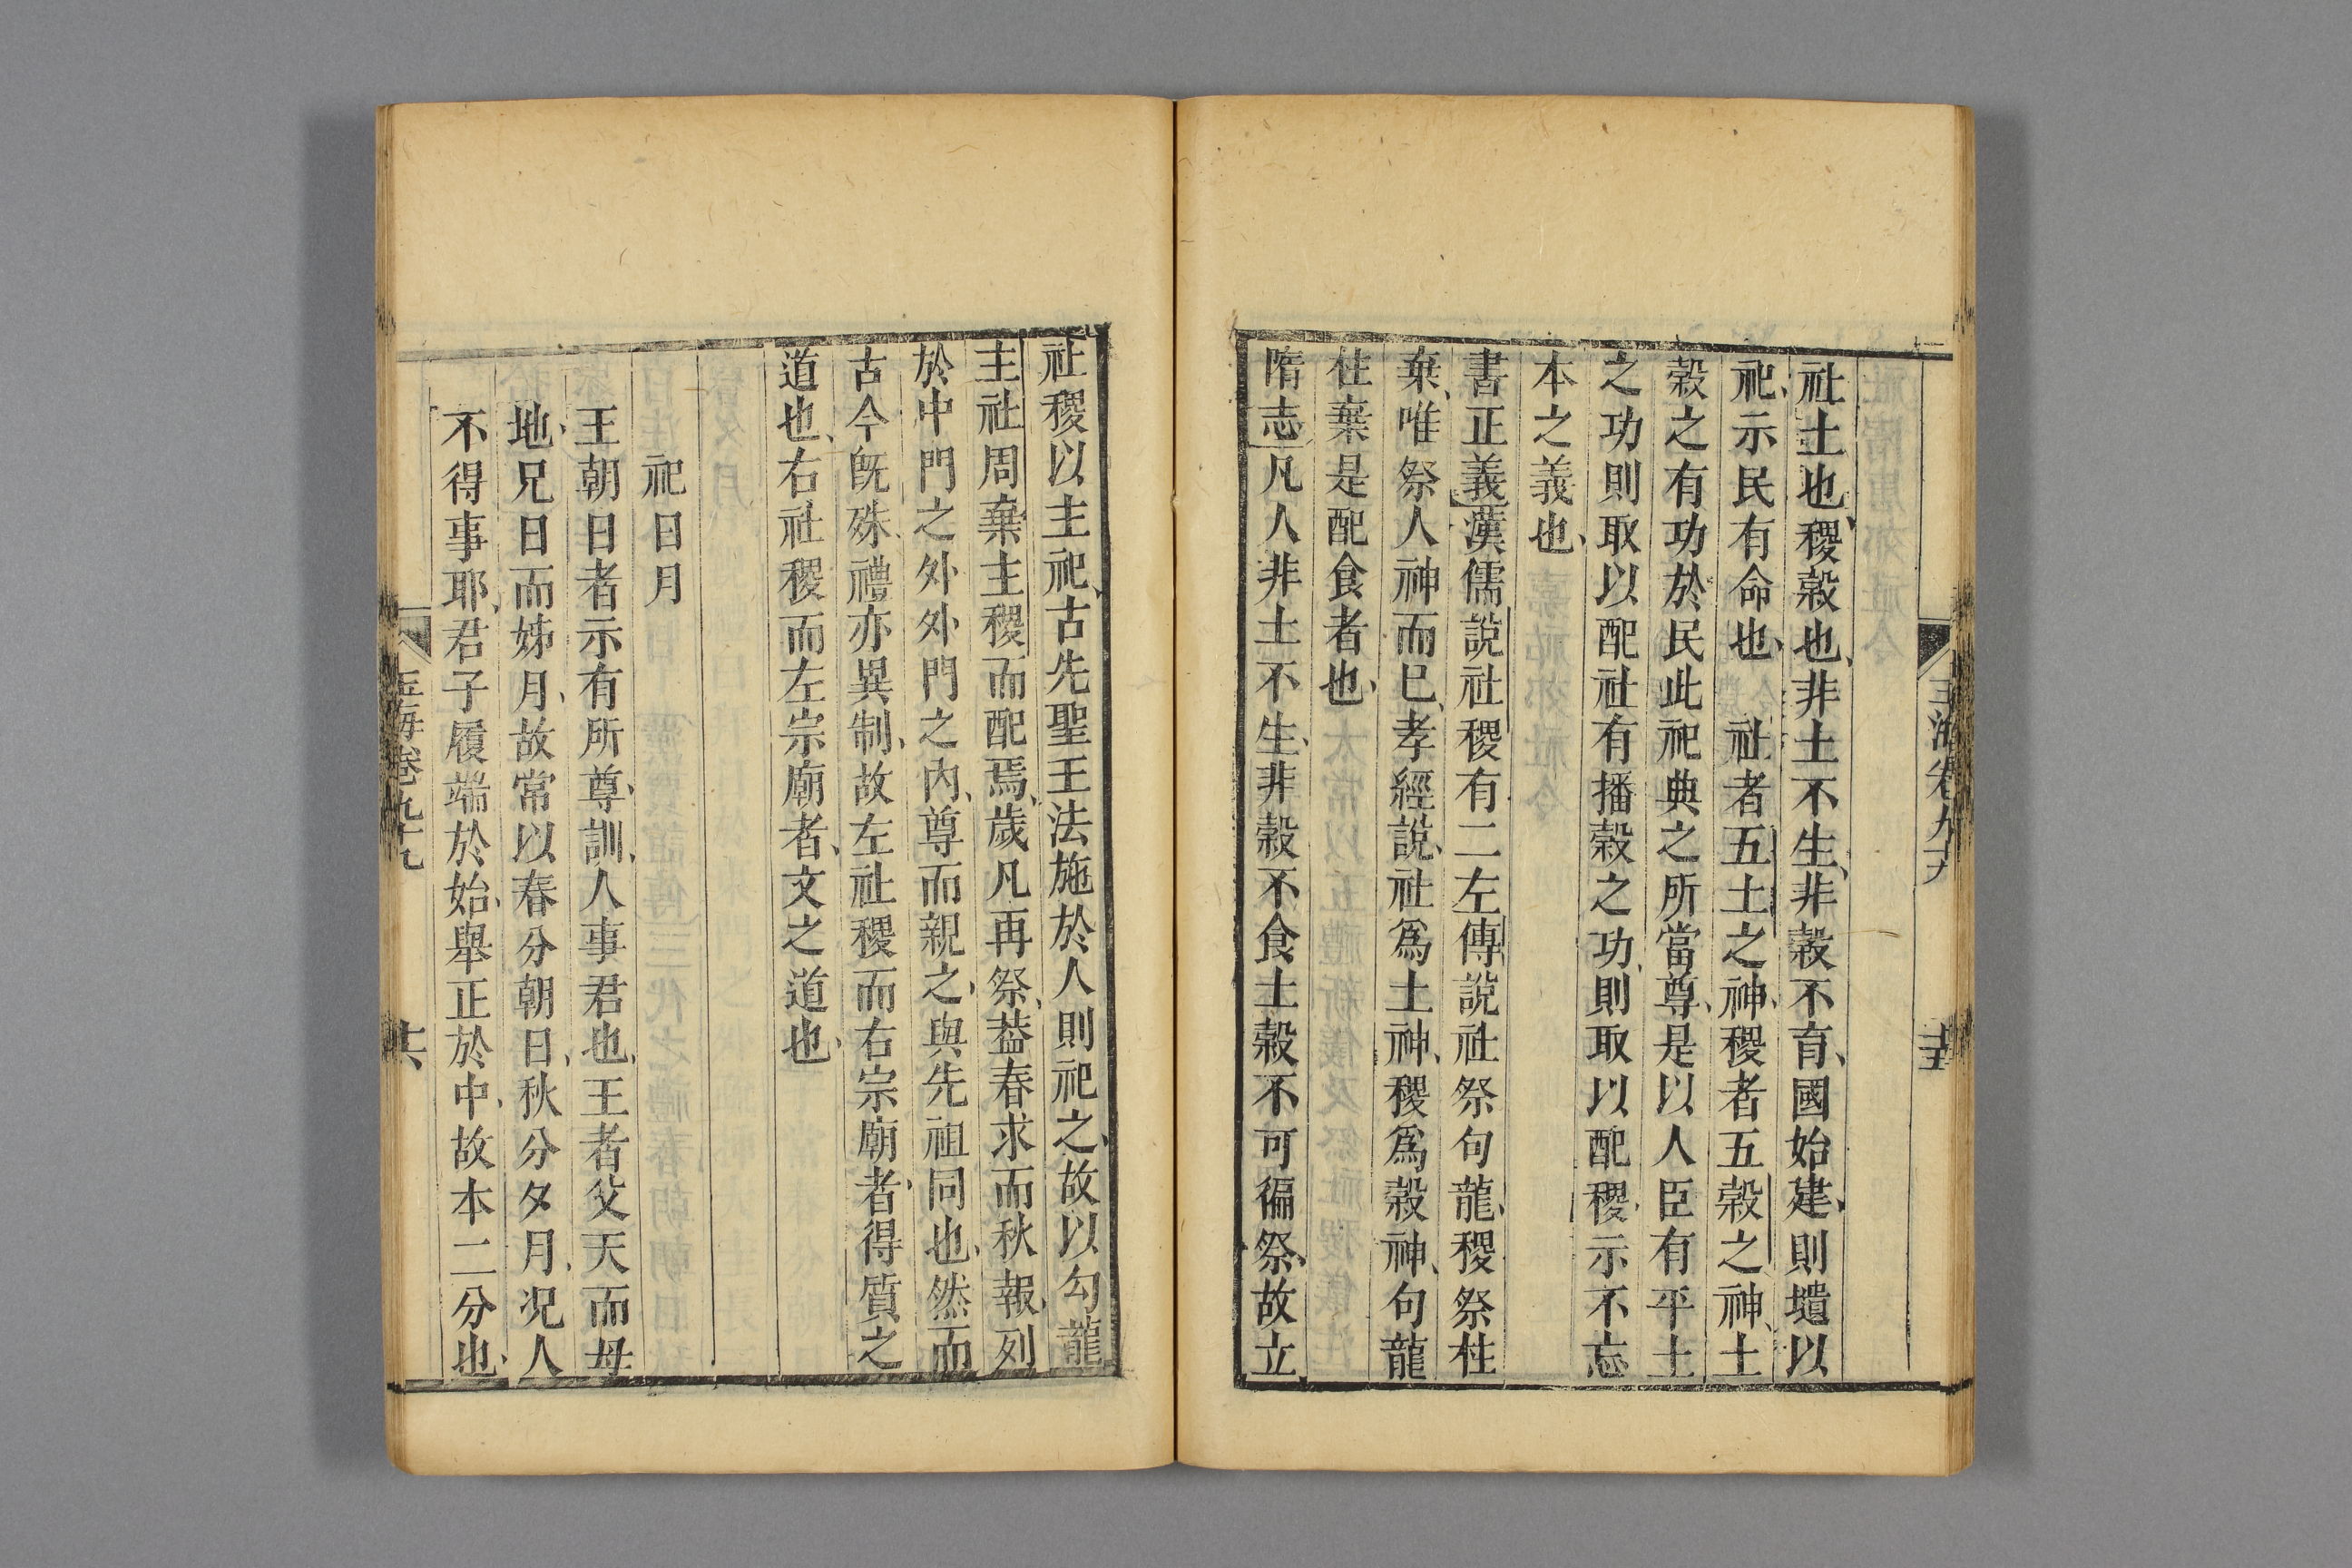 玉海卷九十九
十五
社土也、稷穀也、非土不生、非穀不育、國始建、則壝以
祀、示民有命也、社者五土之神、稷者五穀之神、土
穀之有功於民此祀典之所當尊、是以人臣有平土
之功則取以配社有播穀之功、則取以配稷、示不忘
本之義也、
書正義漢儒說社稷有二左傳說社祭句龍、稷祭柱
棄、唯祭人神而已、孝經說、社爲土神、稷爲穀神、句龍
柱棄是配食者也、
隋志凡人非土不生、非穀不食土穀不可徧祭、故立
社稷以主祀、古先聖王法施於人則祀之、故以勾龍
主社周棄主稷而配焉、歲凡再祭、葢春求而秋報、列
於中門之外外門之内、尊而親之、與先祖同也、然而
古今旣殊、禮亦異制、故左社稷而右宗廟者、得質之
道也、右社稷而左宗廟者、文之道也、
祀日月
王朝日者示有所尊、訓人事君也、王者父天而母
地、兄日而姊月、故常以春分朝日、秋分夕月、况人
不得事耶、君子履端於始、舉正於中、故本二分也、
玉海卷九十九
十六